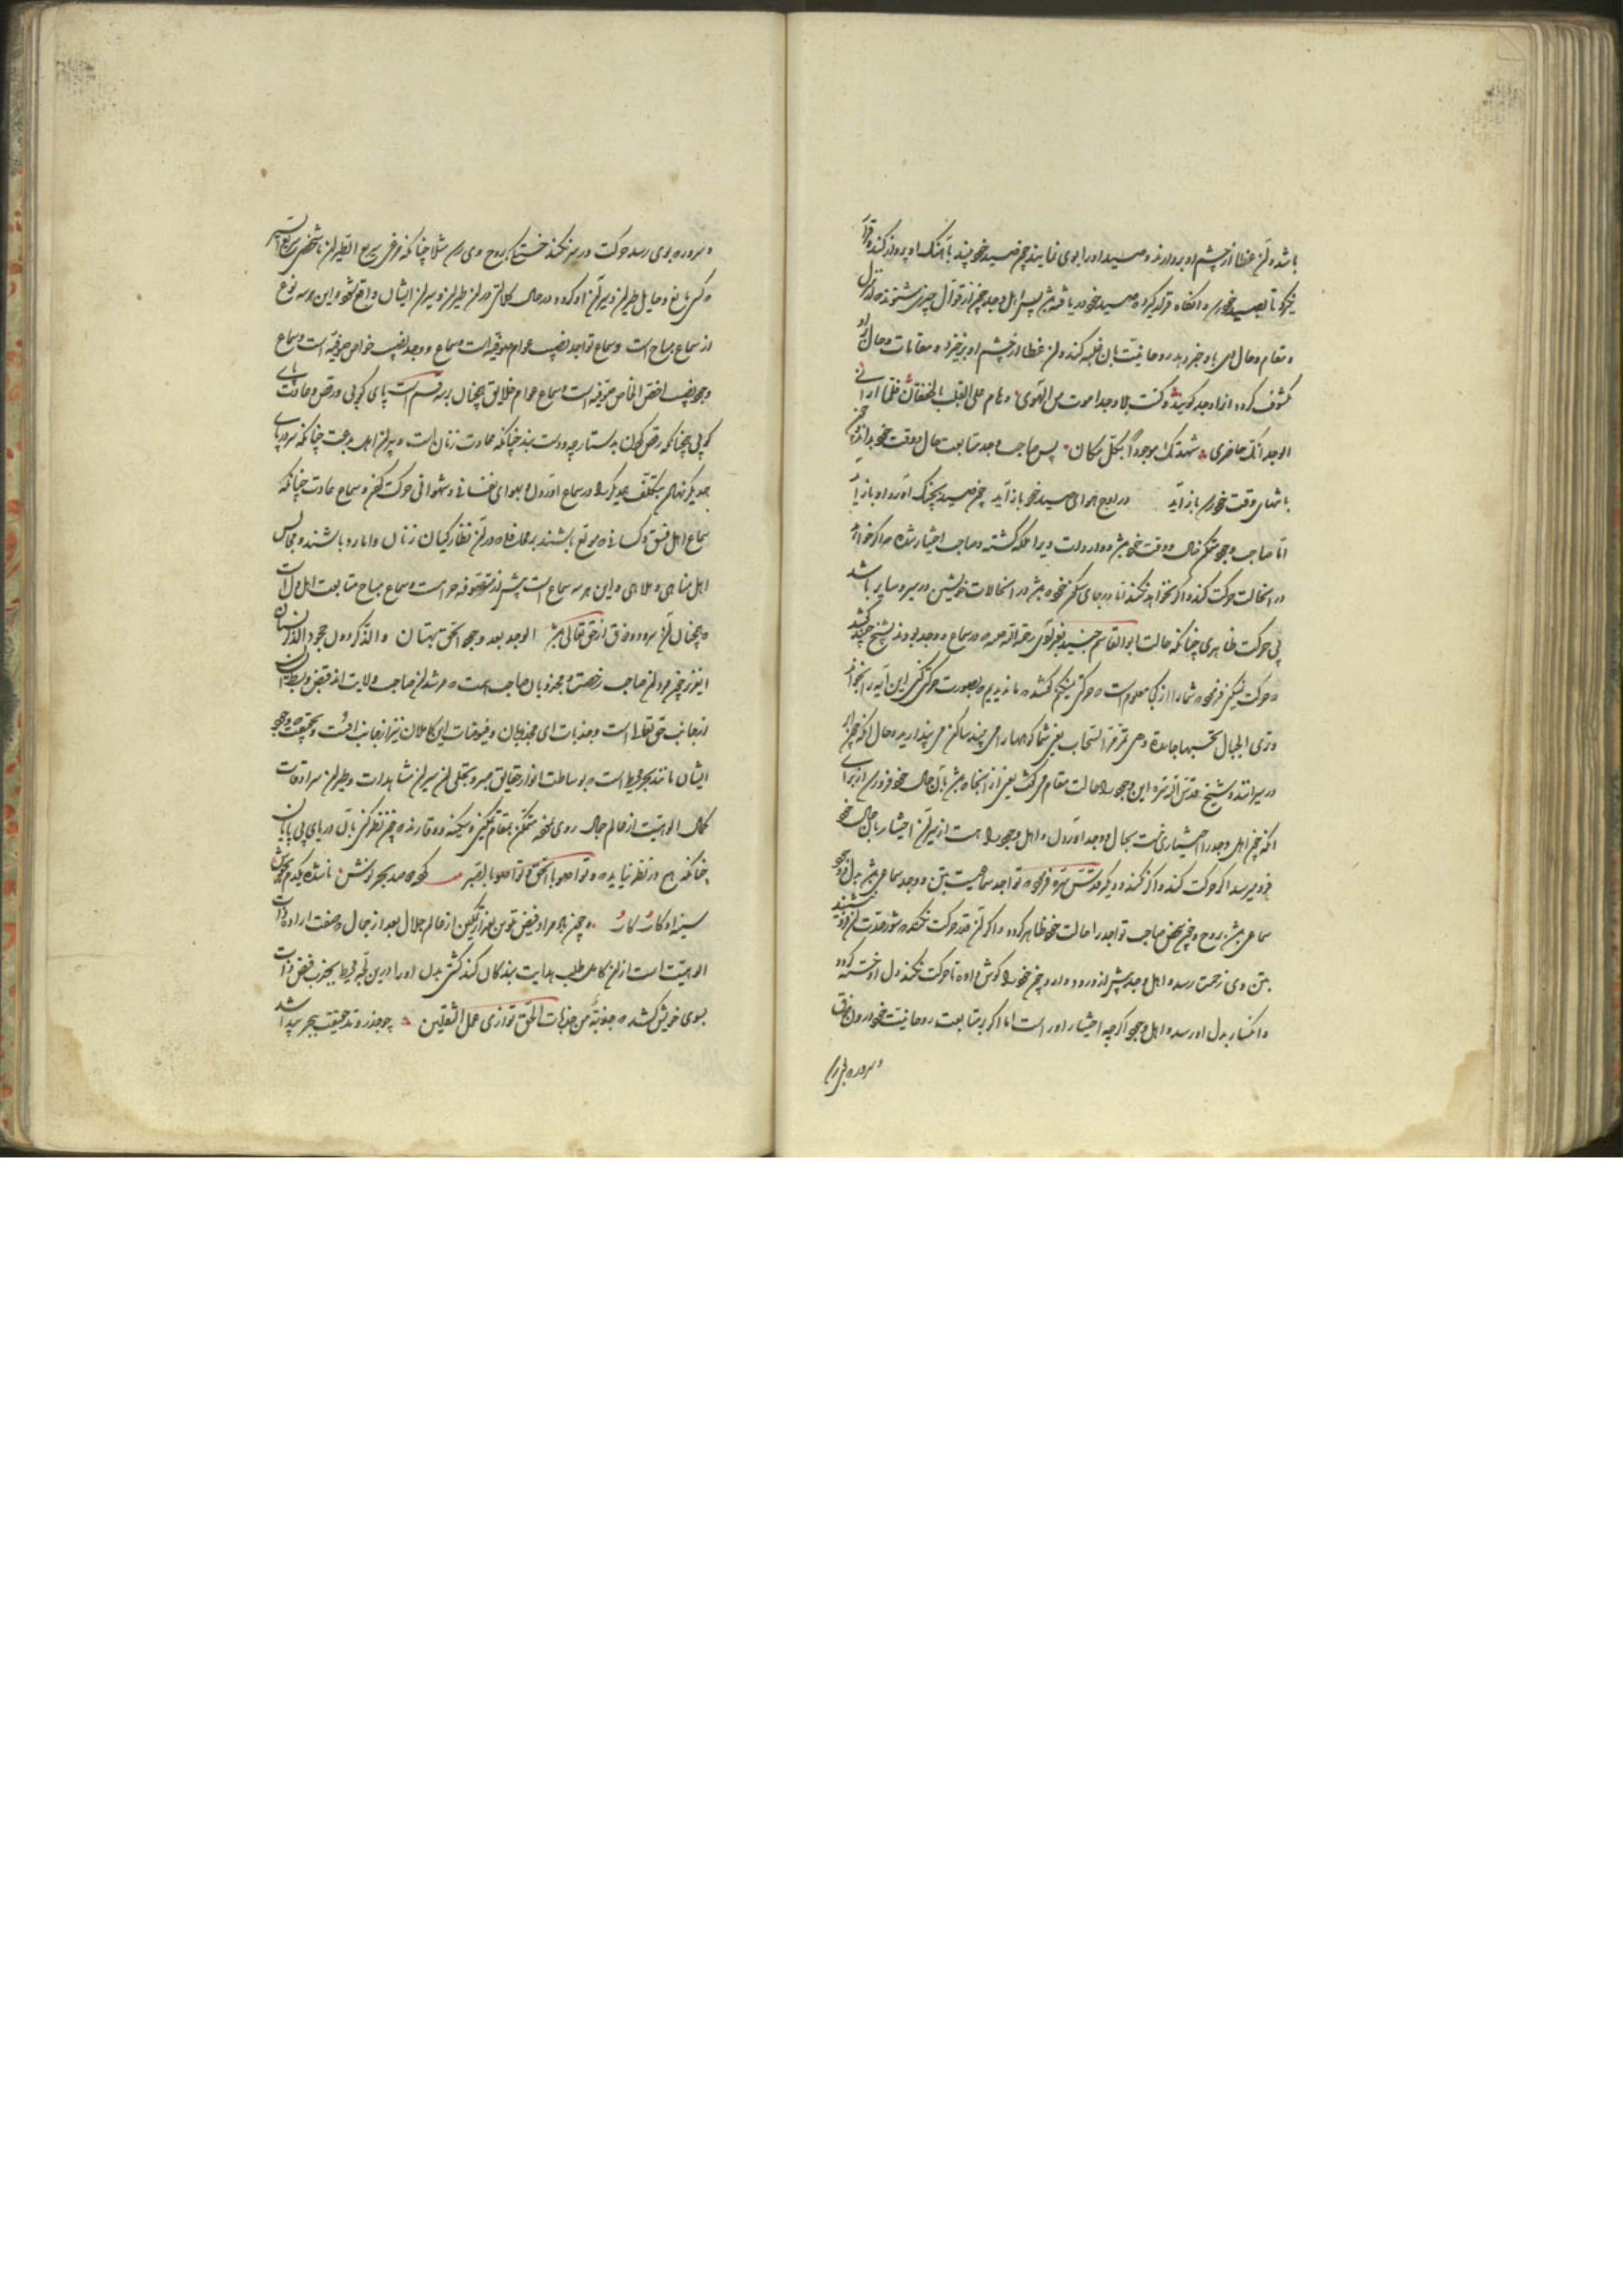 باشد و آن غطا از چشم او بردارند و صید او را بوی نمایند چون صید خود بیند باهنک او پرواز کند و قرار
نگیرد تا بصید خود رسد و آنگاه قرار گیرد که صید خود دریافته باشد پس اهل وجد چون از قوال چیزی شنوند که از منزل
و مقام و حال وی باو خبر دهد روحانیت بآن غلبه کند و آن غطا از چشم او برخیزد و مقامات و حال برو
مکشوف کردد از او وجد کویند و کنت بلا وجد اموت من الهوی و هام علی القلب بالخفقان فلما ارانی
الوجد انک حاضری شهدتک موجودا بکل مکان پس صاحب وجد متابعت حال و وقت خود
باشهای وقت خود باز آید در اوج هوای صید خود باز آید چون صید بچنک آورد او باز آید
اما صاحب وجود متمکن حال و وقت خود باشد و واردات ویرا ملک کشته و صاحب اختیار شده که اکر خواهد
در آنحالت حرکت کند و اکر نخواهد نکند اما در جای سکون خود باشد و در آنحالات خویش در سیر و سایر باشد
بی حرکت ظاهری چنانکه حالت ابو القاسم جنید بغدادی رحمة الله علیه که در سماع و وجد بودند شیخ جنید کشید
و حرکت نمیکنی فرمود شما را از کجا معلوم است که حرکتی نمیکنم کفتند ما ندیدیم که بصورت حرکتی کنی این آیه را بخواند
وتری الجبال تحسبها جامدة وهی تمر مر السحاب یعنی شما کوهها را می بینید ساکن می پندارید و حال آنکه چون ابر
در سیرانند و شیخ قدس الله سره این وجود را حالت مقام می کفت یعنی از آنجا که باشد بآن حال خود فرود رسد از برای
آنکه چون اهل وجد را اختیاری نیست بحال و وجد آوردن و اهل وجود را هست از سیر آن اختیار با حال خود
فرو میرسد اکر حرکت کند و اکر نکند و دیکر قدس سره فرمود که تواجد سماعیست بتن و وجد سماعی باشد بدل و وجود
سماعی باشد بروح و چون بعضی صاحب تواجد را حالت خود ظاهر کردد و اکر آن قدر حرکت نکند که شورمندست
بتن وی زحمت رسد و اهل وجد پیش از ورود وارد چون خود را کوش دارد تا حرکت نکند دل او خسته کردد
و انکسار بدل او رسد و اهل وجود اکرچه اختیار او راست اما اکر بمتابعت روحانیت خود در آن ذوق
و سرور که بوی رسد
و سرور که بوی رسد حرکت در سر نکند خستکی بروح وی رسد مثلا چنانکه مرغی سریع الطیران یا شخصی سریع السیر
که کسی مانع و حایل طیران و سیر آن او کردد در حال کلالتی در آن طیران و سیران ایشان واقع شود و این هر سه نوع
از سماع مباح است و سماع تواجد نصیب عوام صوفیه است و سماع وجد نصیب خواص صوفیه است و سماع
وجود نصیب اخص الخاص صوفیه است و سماع عوام خلایق همچنان بر سه قسم است پای کوبی و رقص و عادت پای
کوبی همچنانکه رقص کردن به دستارچه و دست بند چنانکه عادت زنان است و پیران اهل بدعت چنانکه سر و پای
همدیکر نهادن بتکلف همدیکر را در سماع آوردن و بهوای نفسانی و شهوانی حرکت کردن و سماع عادت چنانکه
سماع اهل فسق و کسانی که موقع باشند بر محل مناهی و در آن نظارکیان زنان و امارد باشند و مجالس
اهل مناهی و ملاهی و این هر سه سماع است پیش از متصوفه حرام است و سماع مباح متابعت اهل دل است
همچنان آن سرود و ذوق از حق تعالی باشد الوجد بعد وجود الحق بهتان والذکر دون جحود الذکر نسیان
ازجانب حق تعالی است و جذبات ای مجذوبان و فیوضات ای کاملان نیز ازجانب اوست و بحقیقت وجود
ایشان مانند بحر محیط است که بوساطت انوار حقایق مهر و تجلی از سیران مشاهدات و طیران سرادقات
کمال الوهیت از عالم جمال روی نموده متمکن بمقام تمکین و سکینه و وقارند که چون نظر کنی بآن دریای بی پایان
چنانکه هیچ در نظر نیاید که و تواصوا بالحق و تواصوا بالصبر کوه صد بحر نوشش ناشده یکدم
سینه او کار کار و چون همراه فیض تلوین بغیر از تمکین از عالم جلال بعد از جمال و صفت ارادة ذات
الوهیت است از آن کامل طلب هدایت بندکان کند کشتی دل او را در این لجه محیط بجذب فیض ذات
بسوی خویش کشد که جذبة من جذبات الحق توازی عمل الثقلین چو جذر و مد حقیقت ببحر پیدا شد